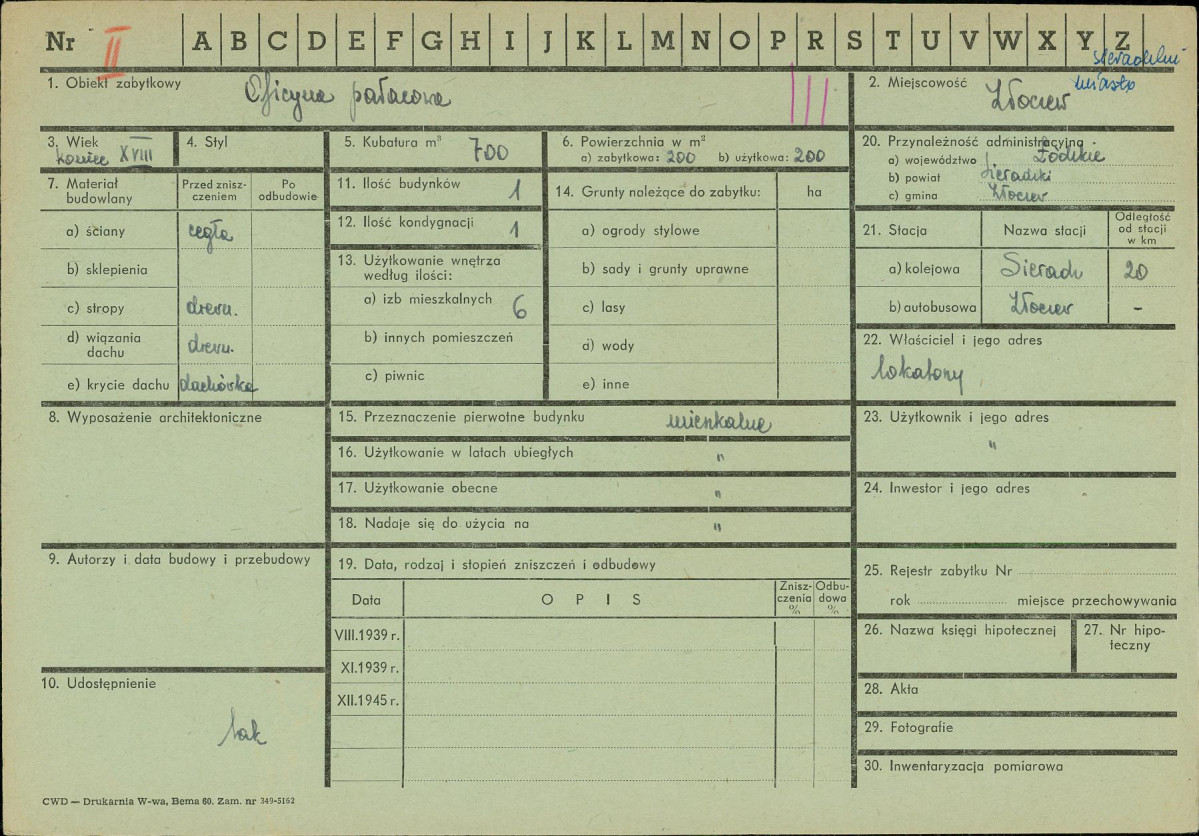 Nr II A B C D E F G H I J K L M N O P R S T U V W X Y Z
sieradzki
miasto
1. Obiekt zabytkowy Oficyna pałacowa III
2. Miejscowość Złoczew
3. Wiek koniec XVIII
4. Styl
5. Kubatura m³ 700
6. Powierzchnia w m²
a) zabytkowa: 200 b) użytkowa: 200
20. Przynależność administracyjna
a) województwo Łódzkie
b) powiat Sieradzki
c) gmina Złoczew
7. Materiał budowlany
Przed zniszczeniem
Po odbudowie
a) ściany cegła
b) sklepienia
c) stropy drewn.
d) wiązania dachu drewn.
e) krycie dachu dachówka
11. Ilość budynków 1
12. Ilość kondygnacji 1
13. Użytkowanie wnętrza
według ilości:
a) izb mieszkalnych 6
b) innych pomieszczeń
c) piwnic
14. Grunty należące do zabytku: ha
a) ogrody stylowe
b) sady i grunty uprawne
c) lasy
d) wody
e) inne
21. Stacja Nazwa stacji
Odległość
od stacji
w km
a) kolejowa Sieradz 20
b) autobusowa Złoczew -
22. Właściciel i jego adres
lokatorzy
8. Wyposażenie architektoniczne
15. Przeznaczenie pierwotne budynku mieszkalne
16. Użytkowanie w latach ubiegłych "
17. Użytkowanie obecne "
18. Nadaje się do użycia na "
23. Użytkownik i jego adres
"
24. Inwestor i jego adres
9. Autorzy i data budowy i przebudowy
19. Data, rodzaj i stopień zniszczeń i odbudowy
Data OPIS
Zniszczenia %
Odbudowa %
VIII.1939 r.
XI.1939 r.
XII.1945 r.
25. Rejestr zabytku Nr
rok miejsce przechowywania
26. Nazwa księgi hipotecznej
27. Nr hipoteczny
10. Udostępnienie
tak
28. Akta
29. Fotografie
30. Inwentaryzacja pomiarowa
CWD — Drukarnia W-wa, Bema 60. Zam. nr 349-5162